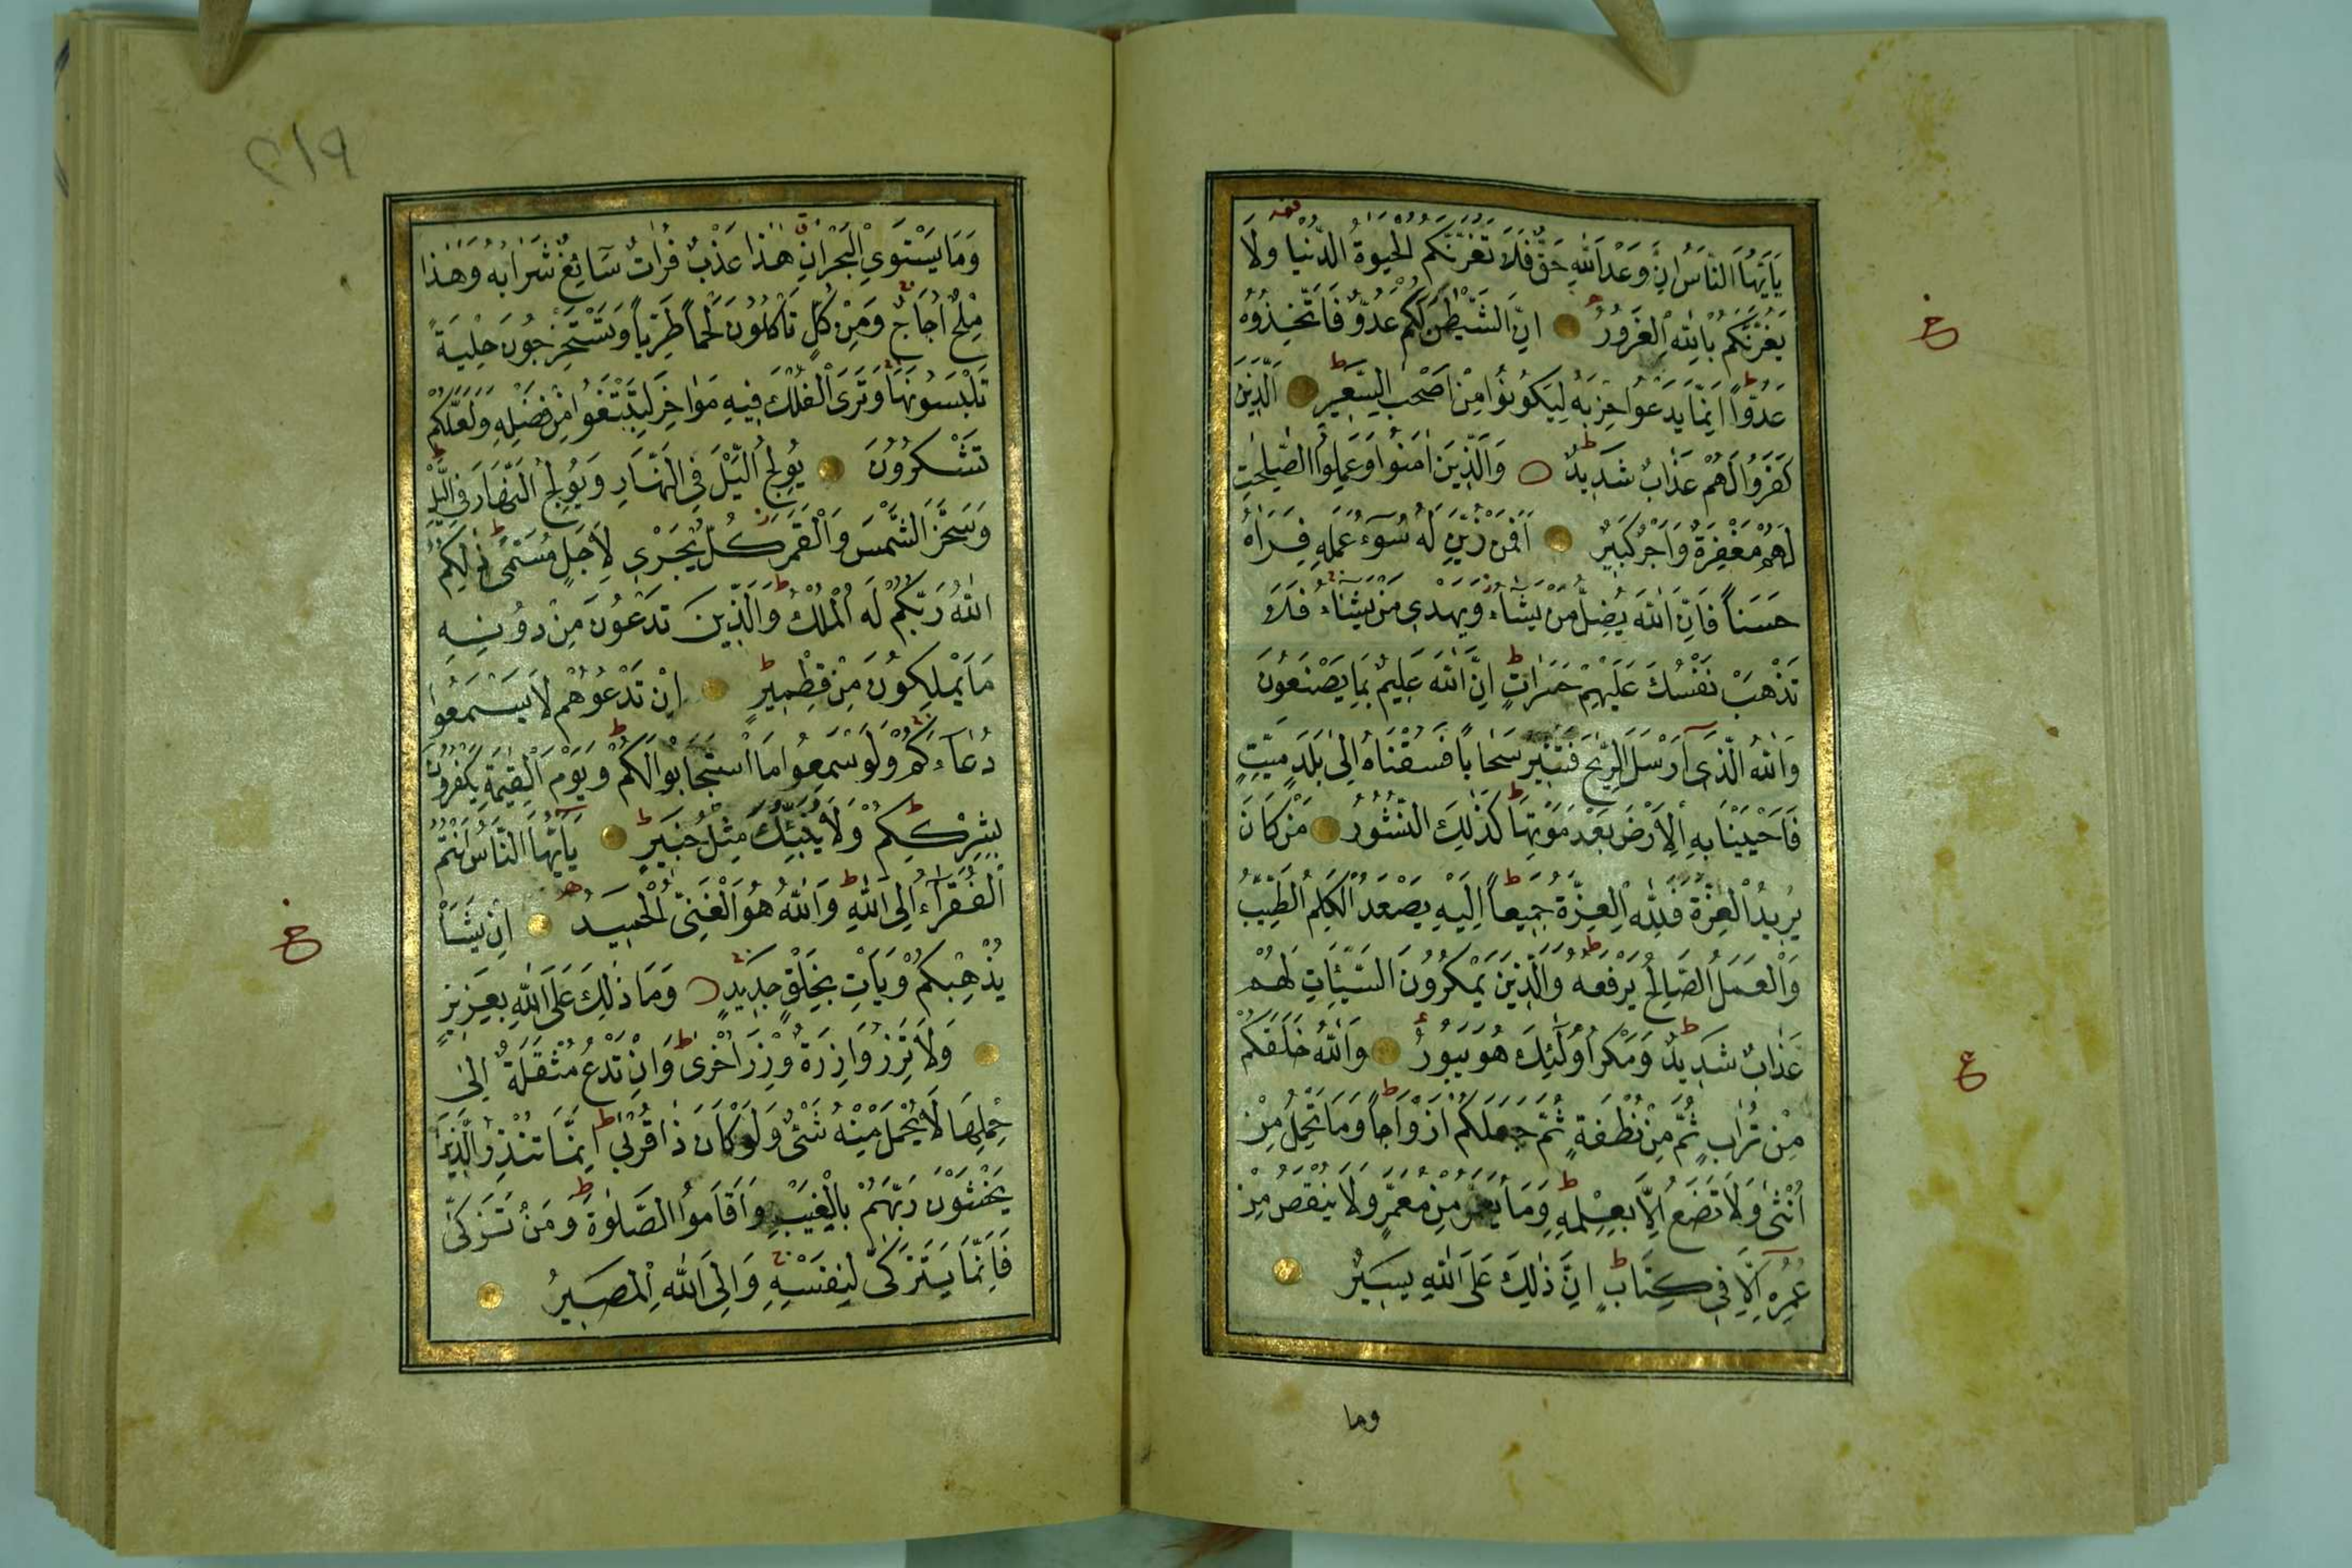 يَا اَيُّهَا النَّاسُ اِنَّ وَعْدَ اللّٰهِ حَقٌّ فَلَا تَغُرَّنَّكُمُ الْحَيٰوةُ الدُّنْيَا وَلَا
يَغُرَّنَّكُمْ بِاللّٰهِ الْغَرُورُ اِنَّ الشَّيْطٰنَ لَكُمْ عَدُوٌّ فَاتَّخِذُوهُ
عَدُوًّا اِنَّمَا يَدْعُوا حِزْبَهُ لِيَكُونُوا مِنْ اَصْحٰبِ السَّعِيرِ اَلَّذِينَ
كَفَرُوا لَهُمْ عَذَابٌ شَدِيدٌ وَالَّذِينَ اٰمَنُوا وَعَمِلُوا الصّٰلِحٰتِ
لَهُمْ مَغْفِرَةٌ وَاَجْرٌ كَبِيرٌ اَفَمَنْ زُيِّنَ لَهُ سُوٓءُ عَمَلِهِ فَرَاٰهُ
حَسَنًا فَاِنَّ اللّٰهَ يُضِلُّ مَنْ يَشَٓاءُ وَيَهْدِى مَنْ يَشَٓاءُ فَلَا
تَذْهَبْ نَفْسُكَ عَلَيْهِمْ حَسَرَاتٍ اِنَّ اللّٰهَ عَلِيمٌ بِمَا يَصْنَعُونَ
وَاللّٰهُ الَّذِٓى اَرْسَلَ الرِّيٰحَ فَتُثِيرُ سَحَابًا فَسُقْنَاهُ اِلٰى بَلَدٍ مَيِّتٍ
فَاَحْيَيْنَا بِهِ الْاَرْضَ بَعْدَ مَوْتِهَا كَذٰلِكَ النُّشُورُ مَنْ كَانَ
يُرِيدُ الْعِزَّةَ فَلِلّٰهِ الْعِزَّةُ جَمِيعًا اِلَيْهِ يَصْعَدُ الْكَلِمُ الطَّيِّبُ
وَالْعَمَلُ الصَّالِحُ يَرْفَعُهُ وَالَّذِينَ يَمْكُرُونَ السَّيِّئَاتِ لَهُمْ
عَذَابٌ شَدِيدٌ وَمَكْرُ اُولٰٓئِكَ هُوَ يَبُورُ وَاللّٰهُ خَلَقَكُمْ
مِنْ تُرَابٍ ثُمَّ مِنْ نُطْفَةٍ ثُمَّ جَعَلَكُمْ اَزْوَاجًا وَمَا تَحْمِلُ مِنْ
اُنْثٰى وَلَا تَضَعُ اِلَّا بِعِلْمِهِ وَمَا يُعَمَّرُ مِنْ مُعَمَّرٍ وَلَا يُنْقَصُ مِنْ
عُمُرِهِٓ اِلَّا فِى كِتَابٍ اِنَّ ذٰلِكَ عَلَى اللّٰهِ يَسِيرٌ
وما
ع
ع
٢١٩
وَمَا يَسْتَوِى الْبَحْرَانِ هٰذَا عَذْبٌ فُرَاتٌ سَٓائِغٌ شَرَابُهُ وَهٰذَا
مِلْحٌ اُجَاجٌ وَمِنْ كُلٍّ تَاْكُلُونَ لَحْمًا طَرِيًّا وَتَسْتَخْرِجُونَ حِلْيَةً
تَلْبَسُونَهَا وَتَرَى الْفُلْكَ فِيهِ مَوَاخِرَ لِتَبْتَغُوا مِنْ فَضْلِهِ وَلَعَلَّكُمْ
تَشْكُرُونَ يُولِجُ الَّيْلَ فِى النَّهَارِ وَيُولِجُ النَّهَارَ فِى الَّيْلِ
وَسَخَّرَ الشَّمْسَ وَالْقَمَرَ كُلٌّ يَجْرِى لِاَجَلٍ مُسَمًّى ذٰلِكُمُ
اللّٰهُ رَبُّكُمْ لَهُ الْمُلْكُ وَالَّذِينَ تَدْعُونَ مِنْ دُونِهِ
مَا يَمْلِكُونَ مِنْ قِطْمِيرٍ اِنْ تَدْعُوهُمْ لَا يَسْمَعُوا
دُعَٓاءَكُمْ وَلَوْ سَمِعُوا مَا اسْتَجَابُوا لَكُمْ وَيَوْمَ الْقِيٰمَةِ يَكْفُرُونَ
بِشِرْكِكُمْ وَلَا يُنَبِّئُكَ مِثْلُ خَبِيرٍ يَٓا اَيُّهَا النَّاسُ اَنْتُمُ
الْفُقَرَٓاءُ اِلَى اللّٰهِ وَاللّٰهُ هُوَ الْغَنِىُّ الْحَمِيدُ اِنْ يَشَاْ
يُذْهِبْكُمْ وَيَاْتِ بِخَلْقٍ جَدِيدٍ وَمَا ذٰلِكَ عَلَى اللّٰهِ بِعَزِيزٍ
وَلَا تَزِرُ وَازِرَةٌ وِزْرَ اُخْرٰى وَاِنْ تَدْعُ مُثْقَلَةٌ اِلٰى
حِمْلِهَا لَا يُحْمَلْ مِنْهُ شَىْءٌ وَلَوْ كَانَ ذَا قُرْبٰى اِنَّمَا تُنْذِرُ الَّذِينَ
يَخْشَوْنَ رَبَّهُمْ بِالْغَيْبِ وَاَقَامُوا الصَّلٰوةَ وَمَنْ تَزَكّٰى
فَاِنَّمَا يَتَزَكّٰى لِنَفْسِهِ وَاِلَى اللّٰهِ الْمَصِيرُ
ع